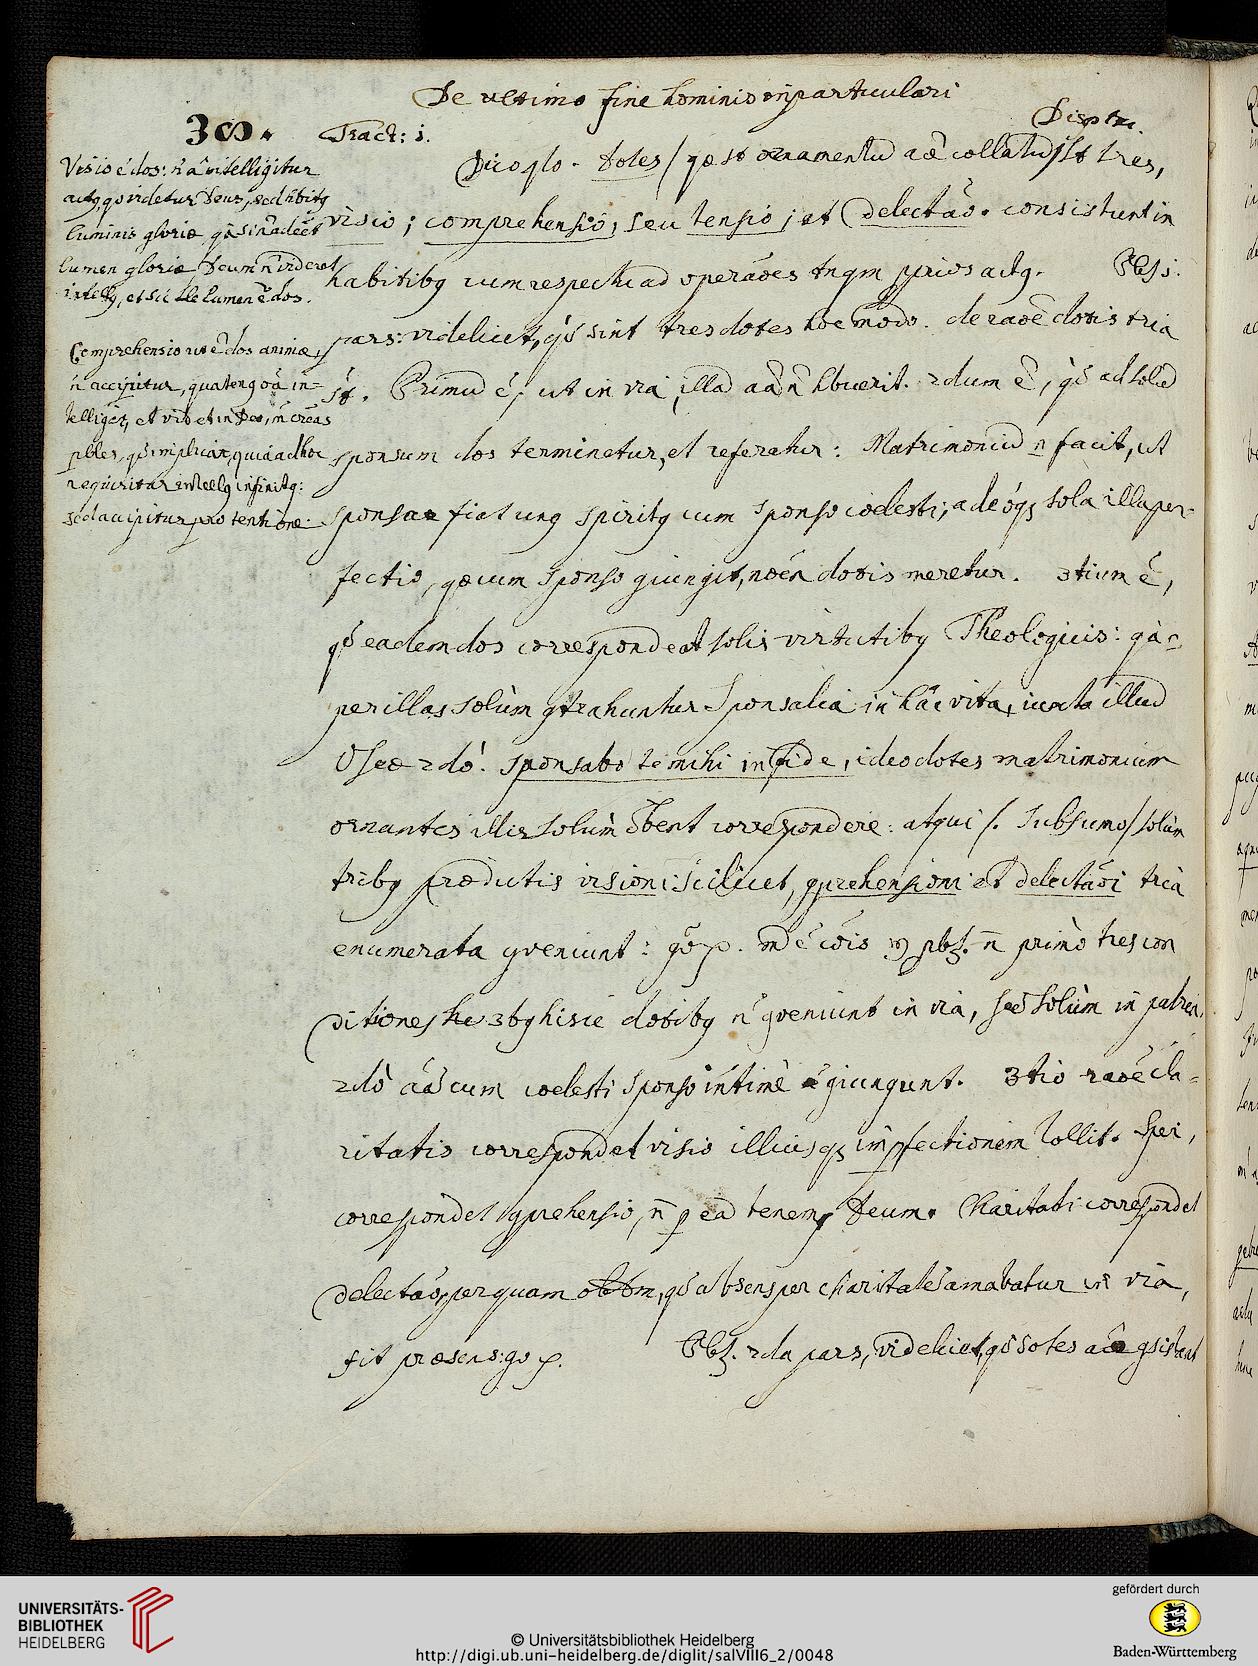 De ultimo fine hominis in particulari
38.
Tract: 1.
Visio ẽ dos: n̄ ãa intelligitur
actq, quo videtur Deus, sed hãbitq
luminis gloriæ, q̃a si n̄ adeẽt
lumen gloriæ Deum n̄ videret
intellq, et sic lumen ẽ dos.
Comprehensio ut ẽ dos animæ,
n̄ accipitur, quatenq oĩa in-
telligẽt, et vidẽt in Deo,
pbles, qd̃ implicat, quia ad hoc
requiritur intellq infinitq:
sed accipitur pro tentione.
Dico qto. Dotes / quæ st̃ ornamentũ aæ collatũ / st̃ tres,
visio; comprehensio, seu tensio; et delectãõ. consistunt in
habitibq cum respectu ad operãões tnqm ppios actq. Pbr 1.
pars: videlicet, qd̃ sint tres dotes hoc modo. de raõe dotis tria
st̃. Primũ ẽ, ut in via illad aã n̄ hbuerit. 2dum ẽ, qd̃ ad solũ
sponsum dos terminetur, et referatur: Matrimoniũ n̄ facit, ut
sponsa fiat unq spiritq cum sponso cœlesti; adeóq sola illa per-
fectio, quæ cum sponso giungit, noẽn dotis meretur. 3tium ẽ,
qd̃ eadem dos correspondeat solis virtutibq Theologicis: q̃a
per illas solùm gtrahuntur Sponsalia in hac vita, iuxta illud
Oseæ 2dò. sponsabo te mihi in fide, ideo dotes matrimonium
ornantes illis solùm dbent correspondere: atqui /. subsumo / solùm
tribq prædictis visioni scilicet, gprehensioni et delectãõi tria
enumerata gveniunt: gõ p. mã ẽ cõis pbr. n̄ primò tres con
ditiones hæ 3bq hisce dotibq n̄ gveniunt in via, sed solùm in patria,
2dò aãs cum cœlesti sponso intimè giungunt. 3tio raõe cla-
ritatis correspondet visio illiusq impfectionem tollit. Spei,
correspondet gprehensio, n̄ p eã tenemq Deum. Charitati correspondet
delectãõ, per quam obtm, qd̃ absens per charitatẽ amabatur in via,
fit præsens: gõ p. Pbr. 2da pars, videlicet, qd̃ dotes aæ gsistant
UNIVERSITÄTS-
BIBLIOTHEK
HEIDELBERG
© Universitätsbibliothek Heidelberg
http://digi.ub.uni-heidelberg.de/diglit/salVIII6_2/0048
gefördert durch
Baden-Württemberg